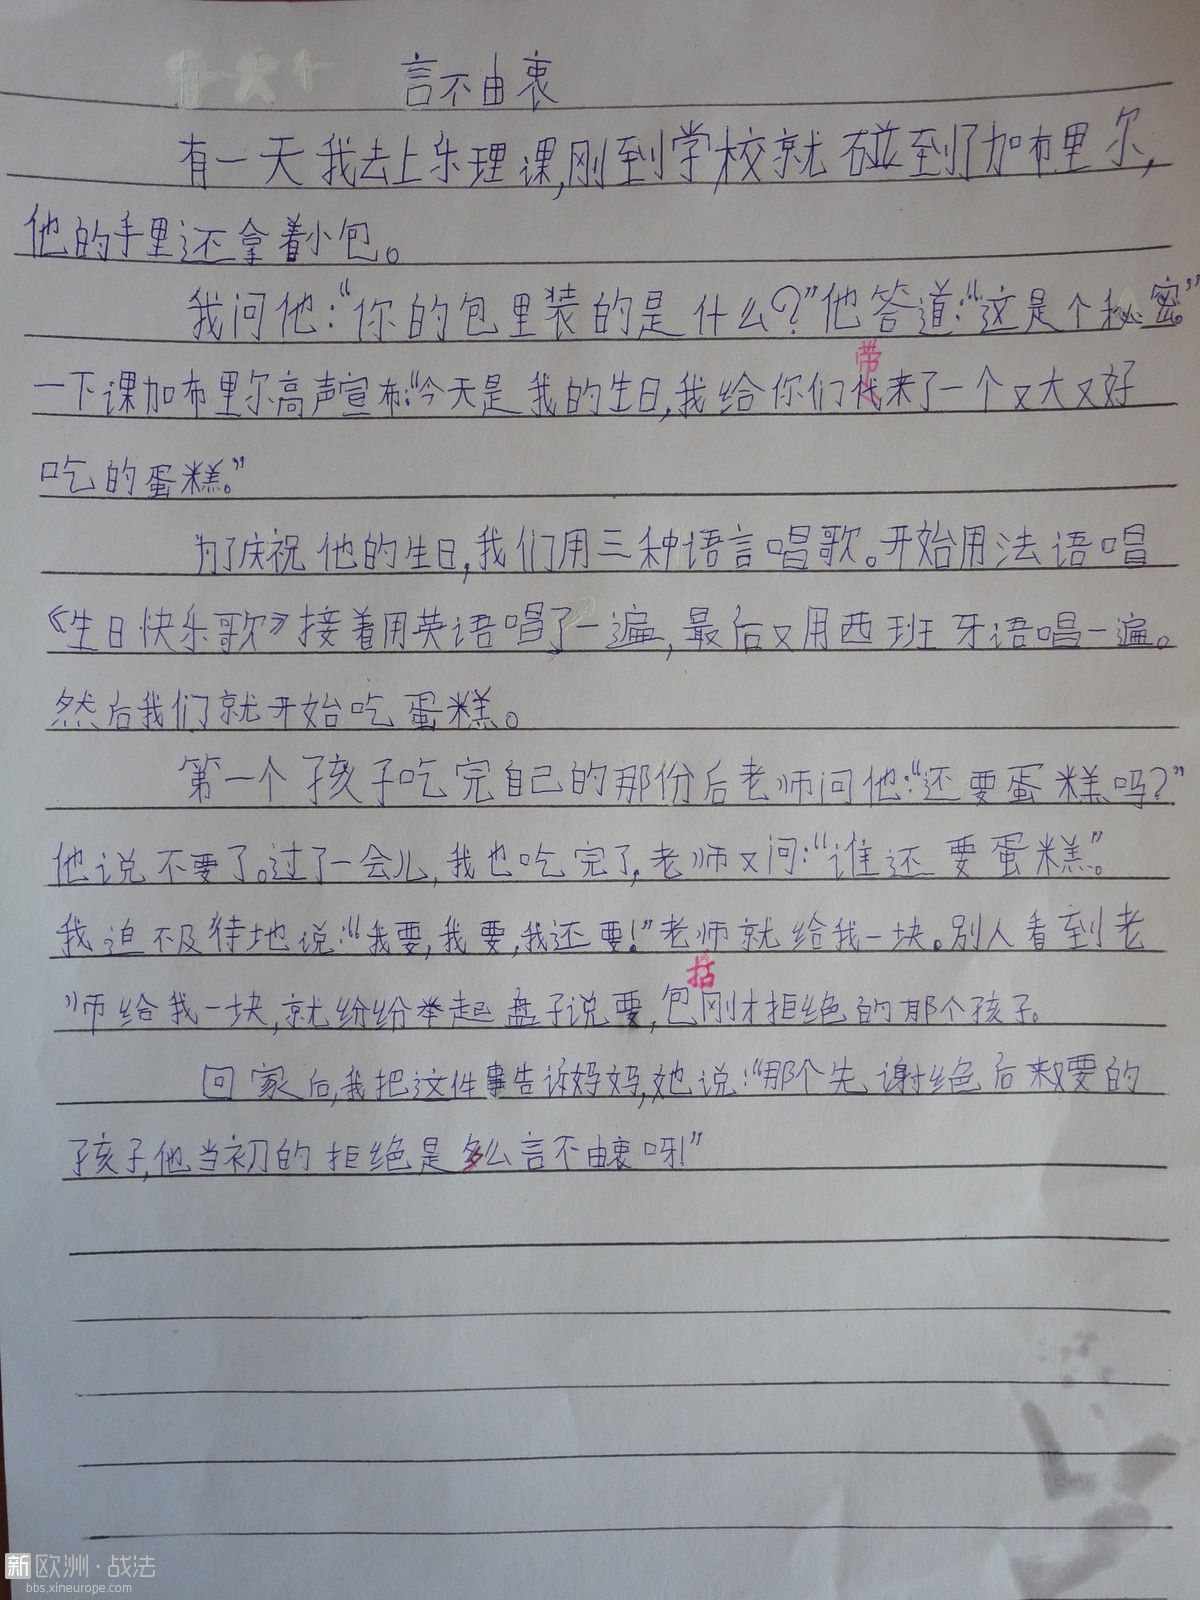 言不由衷
有一天我去上乐理课,刚到学校就碰到了加布里尔,
他的手里还拿着小包。
我问他:“你的包里装的是什么?”他答道:“这是个秘密”
一下课加布里尔高声宣布:“今天是我的生日,我给你们带来了一个又大又好
吃的蛋糕。”
为了庆祝他的生日,我们用三种语言唱歌。开始用法语唱
《生日快乐歌》接着用英语唱了一遍,最后又用西班牙语唱一遍。
然后我们就开始吃蛋糕。
第一个孩子吃完自己的那份后老师问他:“还要蛋糕吗?”
他说不要了。过了一会儿,我也吃完了,老师又问:“谁还要蛋糕”。
我迫不及待地说:“我要,我要,我还要!”老师就给我一块。别人看到老
师给我一块,就纷纷举起盘子说要,包括刚才拒绝的那个孩子。
回家后,我把这件事告诉妈妈,她说:“那个先谢绝后来要的
孩子,他当初的拒绝是多么言不由衷呀!”
新欧洲·战法
bbs.xineurope.com